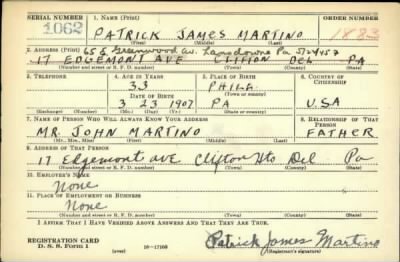 SERIAL NUMBER 1. NAME (Print) ORDER NUMBER
1062 PATRICK JAMES MARTINO 1883
(First) (Middle) (Last)
2. ADDRESS (Print) 65 S Greenwood av. Lansdowne Pa
17 EDGEMONT AVE CLIFTON DEL PA
(Number and street or R. F. D. number) (Town) (County) (State)
3. TELEPHONE 4. AGE IN YEARS 5. PLACE OF BIRTH 6. COUNTRY OF CITIZENSHIP
33 PHILA.
DATE OF BIRTH (Town or county)
3 23 1907 PA U.S.A
(Exchange) (Number) (Mo.) (Day) (Yr.) (State or country)
7. NAME OF PERSON WHO WILL ALWAYS KNOW YOUR ADDRESS 8. RELATIONSHIP OF THAT PERSON
MR. JOHN MARTINO FATHER
(Mr., Mrs., Miss) (First) (Middle) (Last)
9. ADDRESS OF THAT PERSON
17 Edgemont ave Clifton Hts Del Pa
(Number and street or R. F. D. number) (Town) (County) (State)
10. EMPLOYER'S NAME
None
11. PLACE OF EMPLOYMENT OR BUSINESS
None
(Number and street or R. F. D. number) (Town) (County) (State)
I AFFIRM THAT I HAVE VERIFIED ABOVE ANSWERS AND THAT THEY ARE TRUE.
REGISTRATION CARD Patrick James Martino
D. S. S. Form 1 (over) 16—17105 (Registrant's signature)